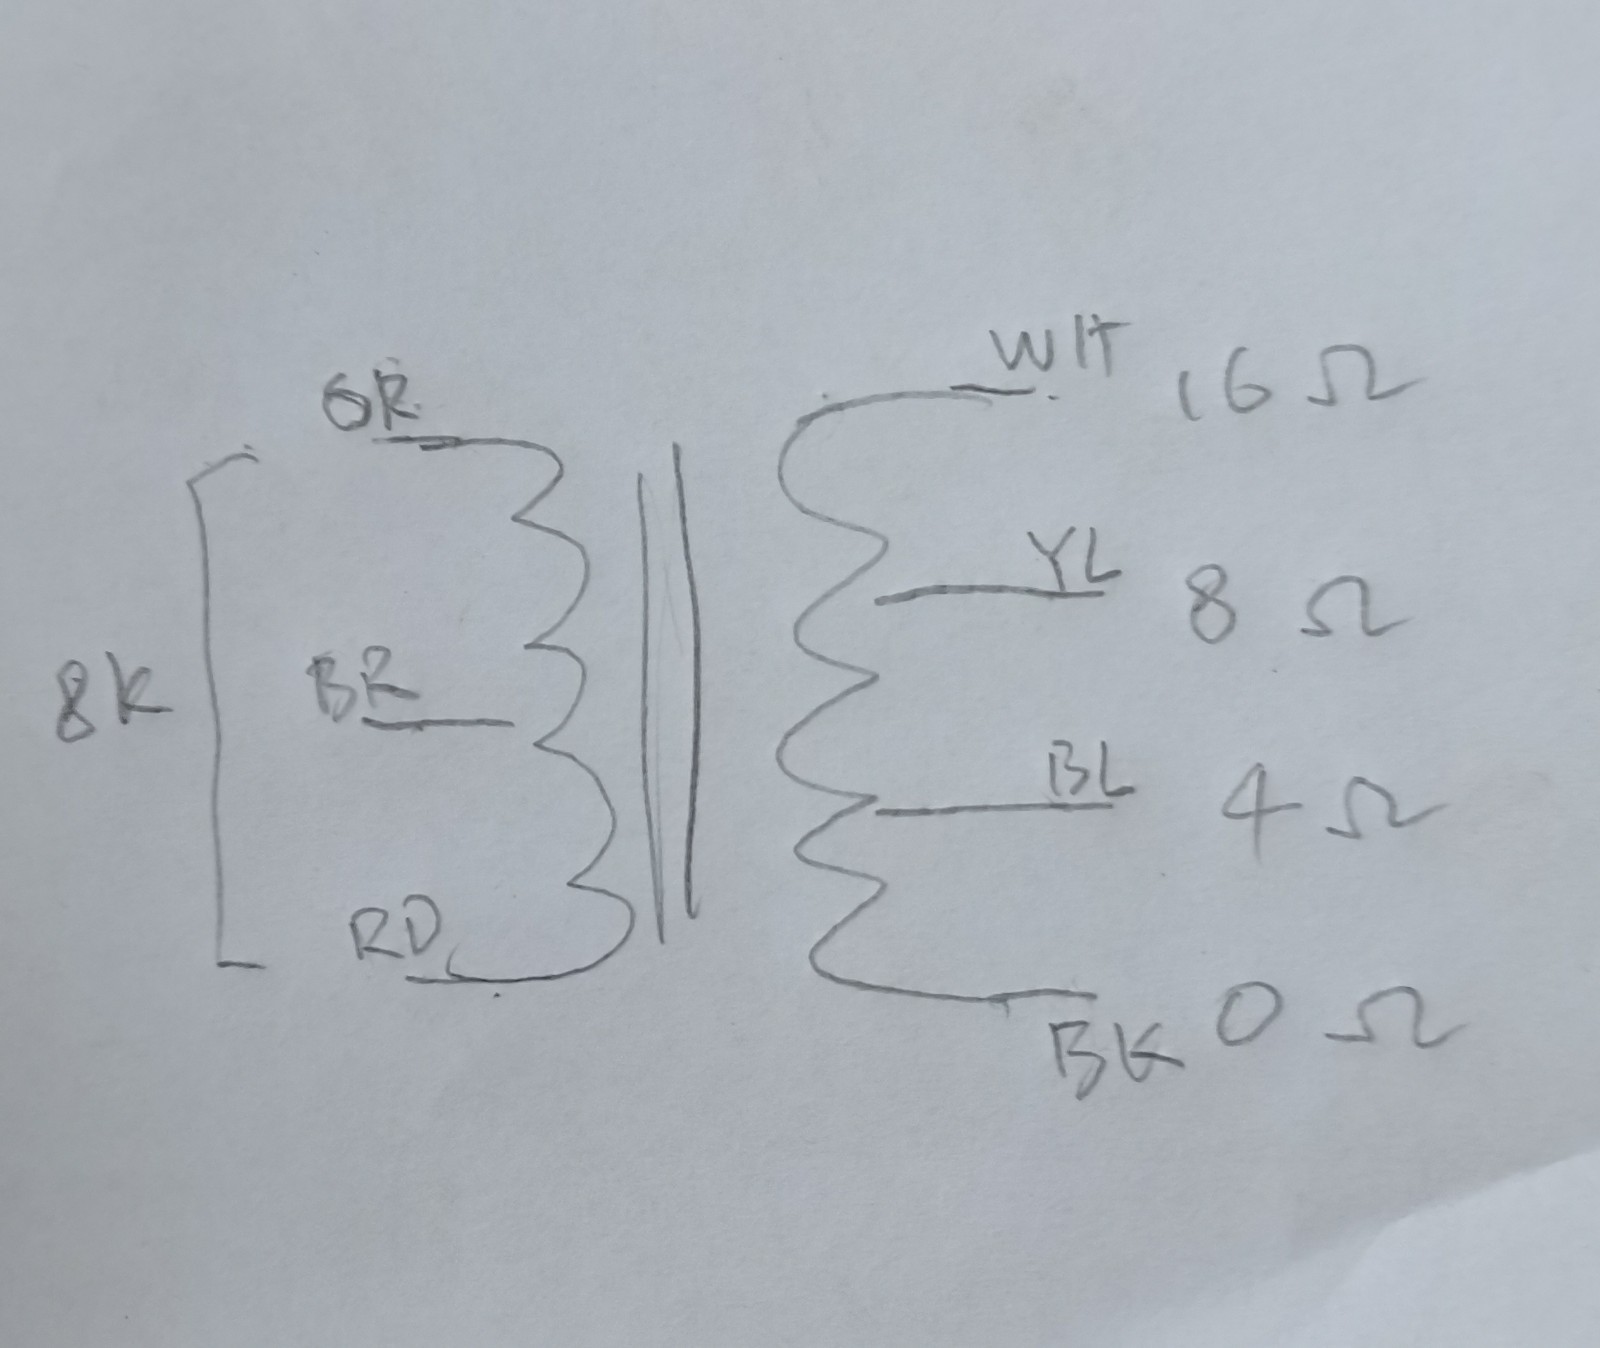 GR
WIT 16 Ω
YL 8 Ω
8K
BR
BL 4 Ω
RD
BK 0 Ω